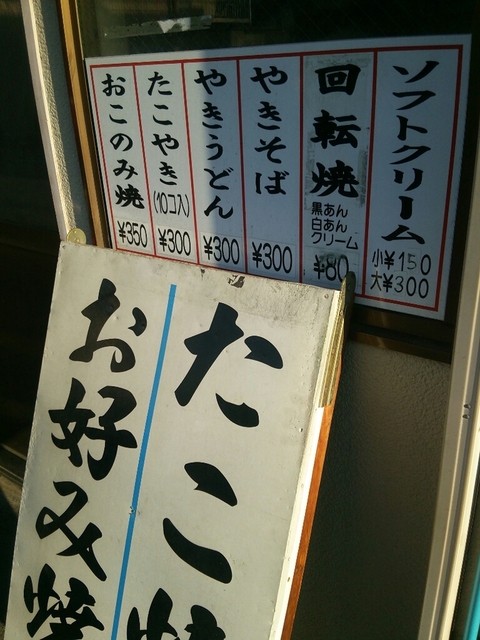 ソフトクリーム
小¥150
大¥300
回転焼
黒あん
白あん
クリーム
¥80
やきそば
¥300
やきうどん
¥300
たこやき(10コ入)
¥300
おこのみ焼
¥350
たこ焼
お好み焼